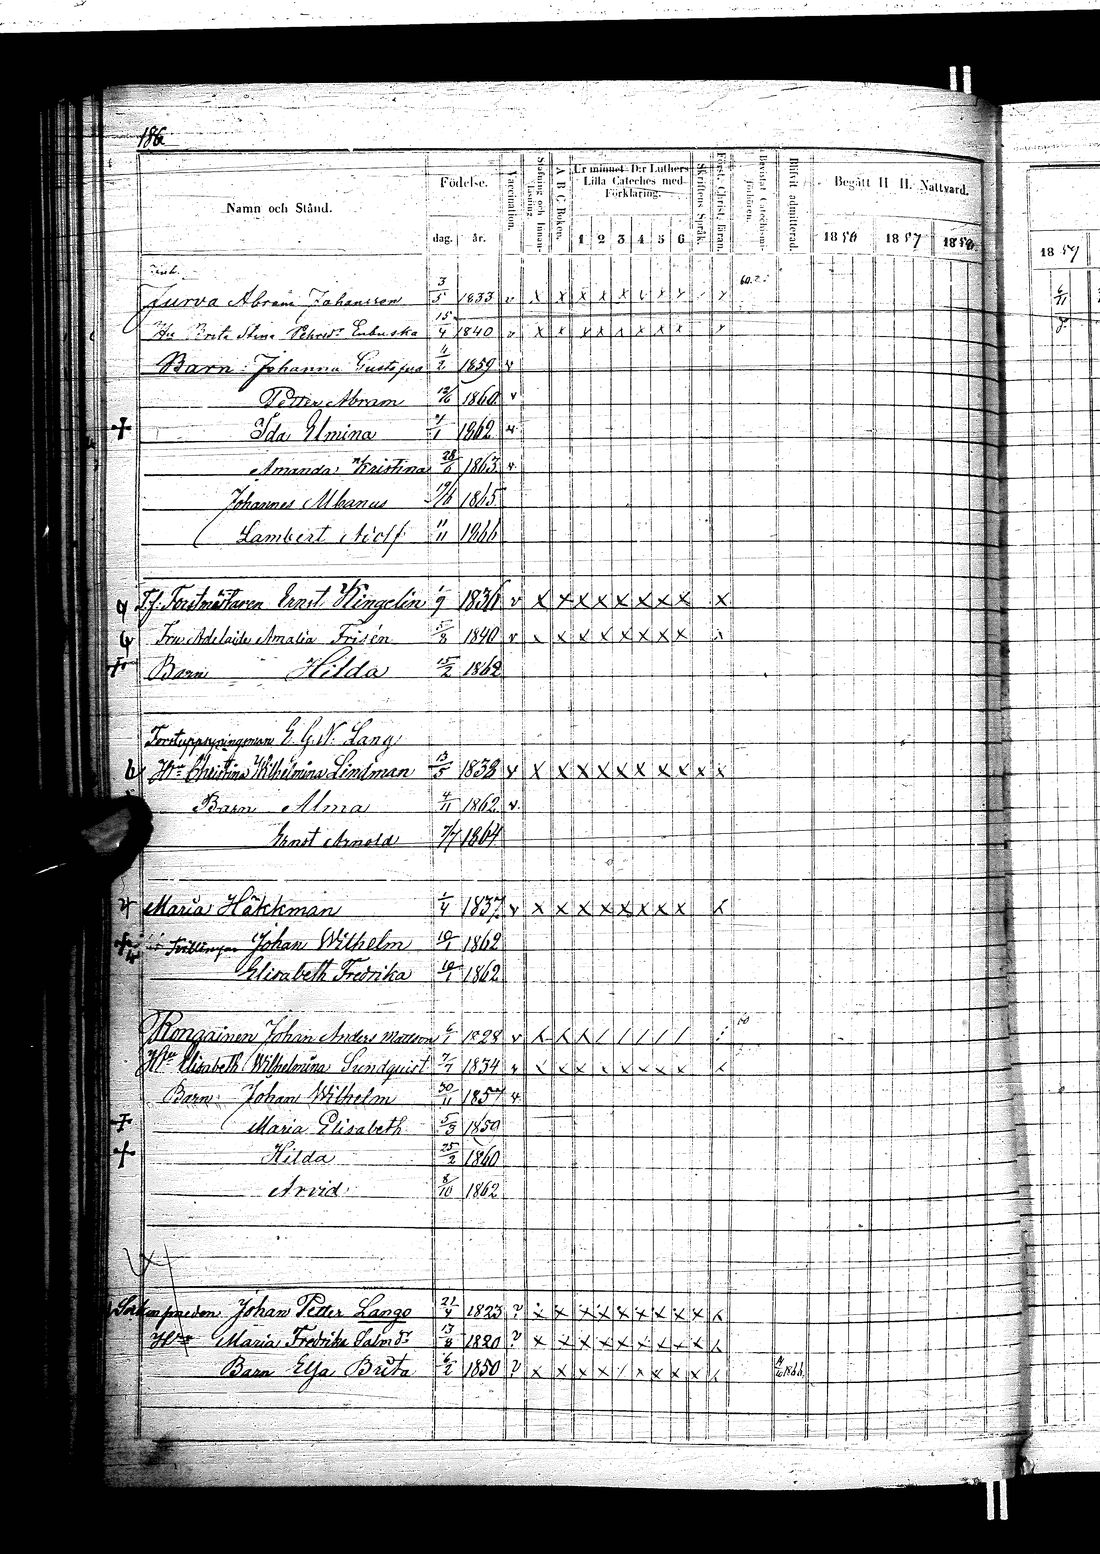 186
Namn och Stånd. Födelse. dag. år. Vaccination. Stafning och Innanläsning. A B C Boken. Ur minnet D:r Luthers Lilla Cateches med Förklaring. 1 2 3 4 5 6 Skriftens Språk. Först. Christ. läran. Bevistat Catechismi-förhören. Blifvit admitterad. Begått H H. Nattvard. 1856 1857 1858
1859
Jurva Abram Johansson 3/5 1833 v x x x x x x x x x 60.
Hu Brita Stina 15/4 1840 v x x x x x x x x x
Barn: Johanna Gustafva 4/2 1859 v
Petter Abram 12/6 1860 v
+ Ida Elmina 1862 v
Amanda Kristina 28/6 1863 v
Johannes Albanus 19/6 1865
Lambert Adolf 11/11 1866
T.f. Forstmästaren Ernst Wingelin 1/9 1836 v x x x x x x x x x
Fru Adelaide Amalia Frisén 5/8 1840 v x x x x x x x x x
+ Barn Hilda 15/2 1862
Forstuppsyningsman E. G. N. Lang
Hu Christina Wilhelmina Lindman 13/5 1838 v x x x x x x x x x x
Barn Alma 4/11 1862 v
Ernst Arnold 7/7 1864
Maria Häkkman 1/4 1837 v x x x x x x x x x
+ Tvillingar Johan Wilhelm 10/1 1862
Elisabeth Fredrika 10/1 1862
Rongainen Johan Anders Mattsson 6/1 1828 v x x x / / / / / /
Hu Elisabeth Wilhelmina Sundquist 7/7 1834 v x x x x x x x x x
Barn: Johan Wilhelm 30/11 1857 v
+ Maria Elisabeth 5/3 1859
+ Hilda 25/2 1860
Arvid 8/10 1862
Johan Petter Lango 21/4 1823 ? x x x x x x x x x x
Hu Maria Fredrika Salmdr 13/8 1820 ? x x x x x x x x x x
Barn Elsa Brita 6/2 1850 ? x x x x / x x x x x 1866